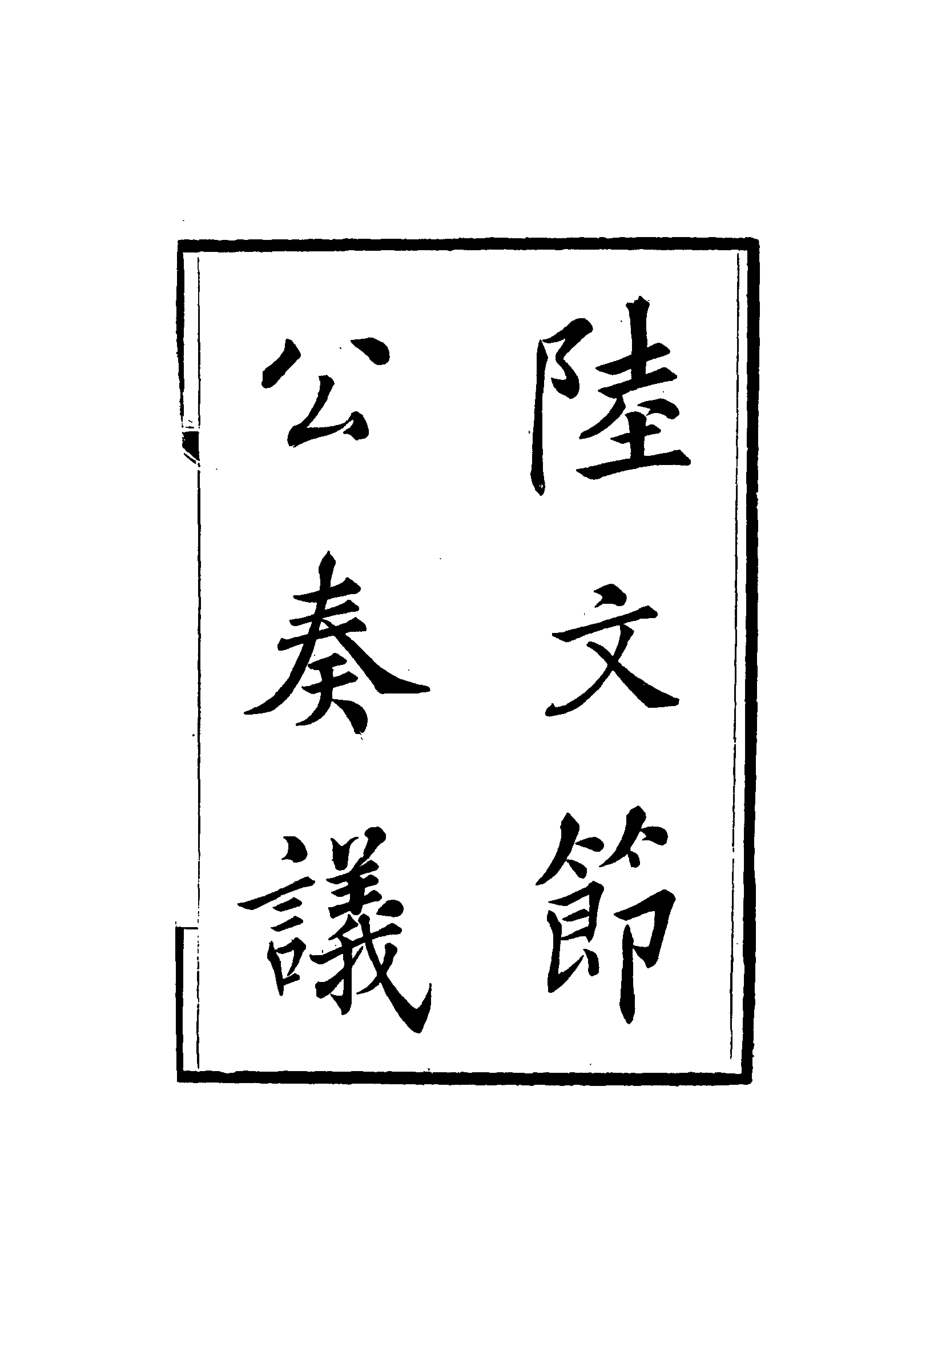 陸文節
公奏議